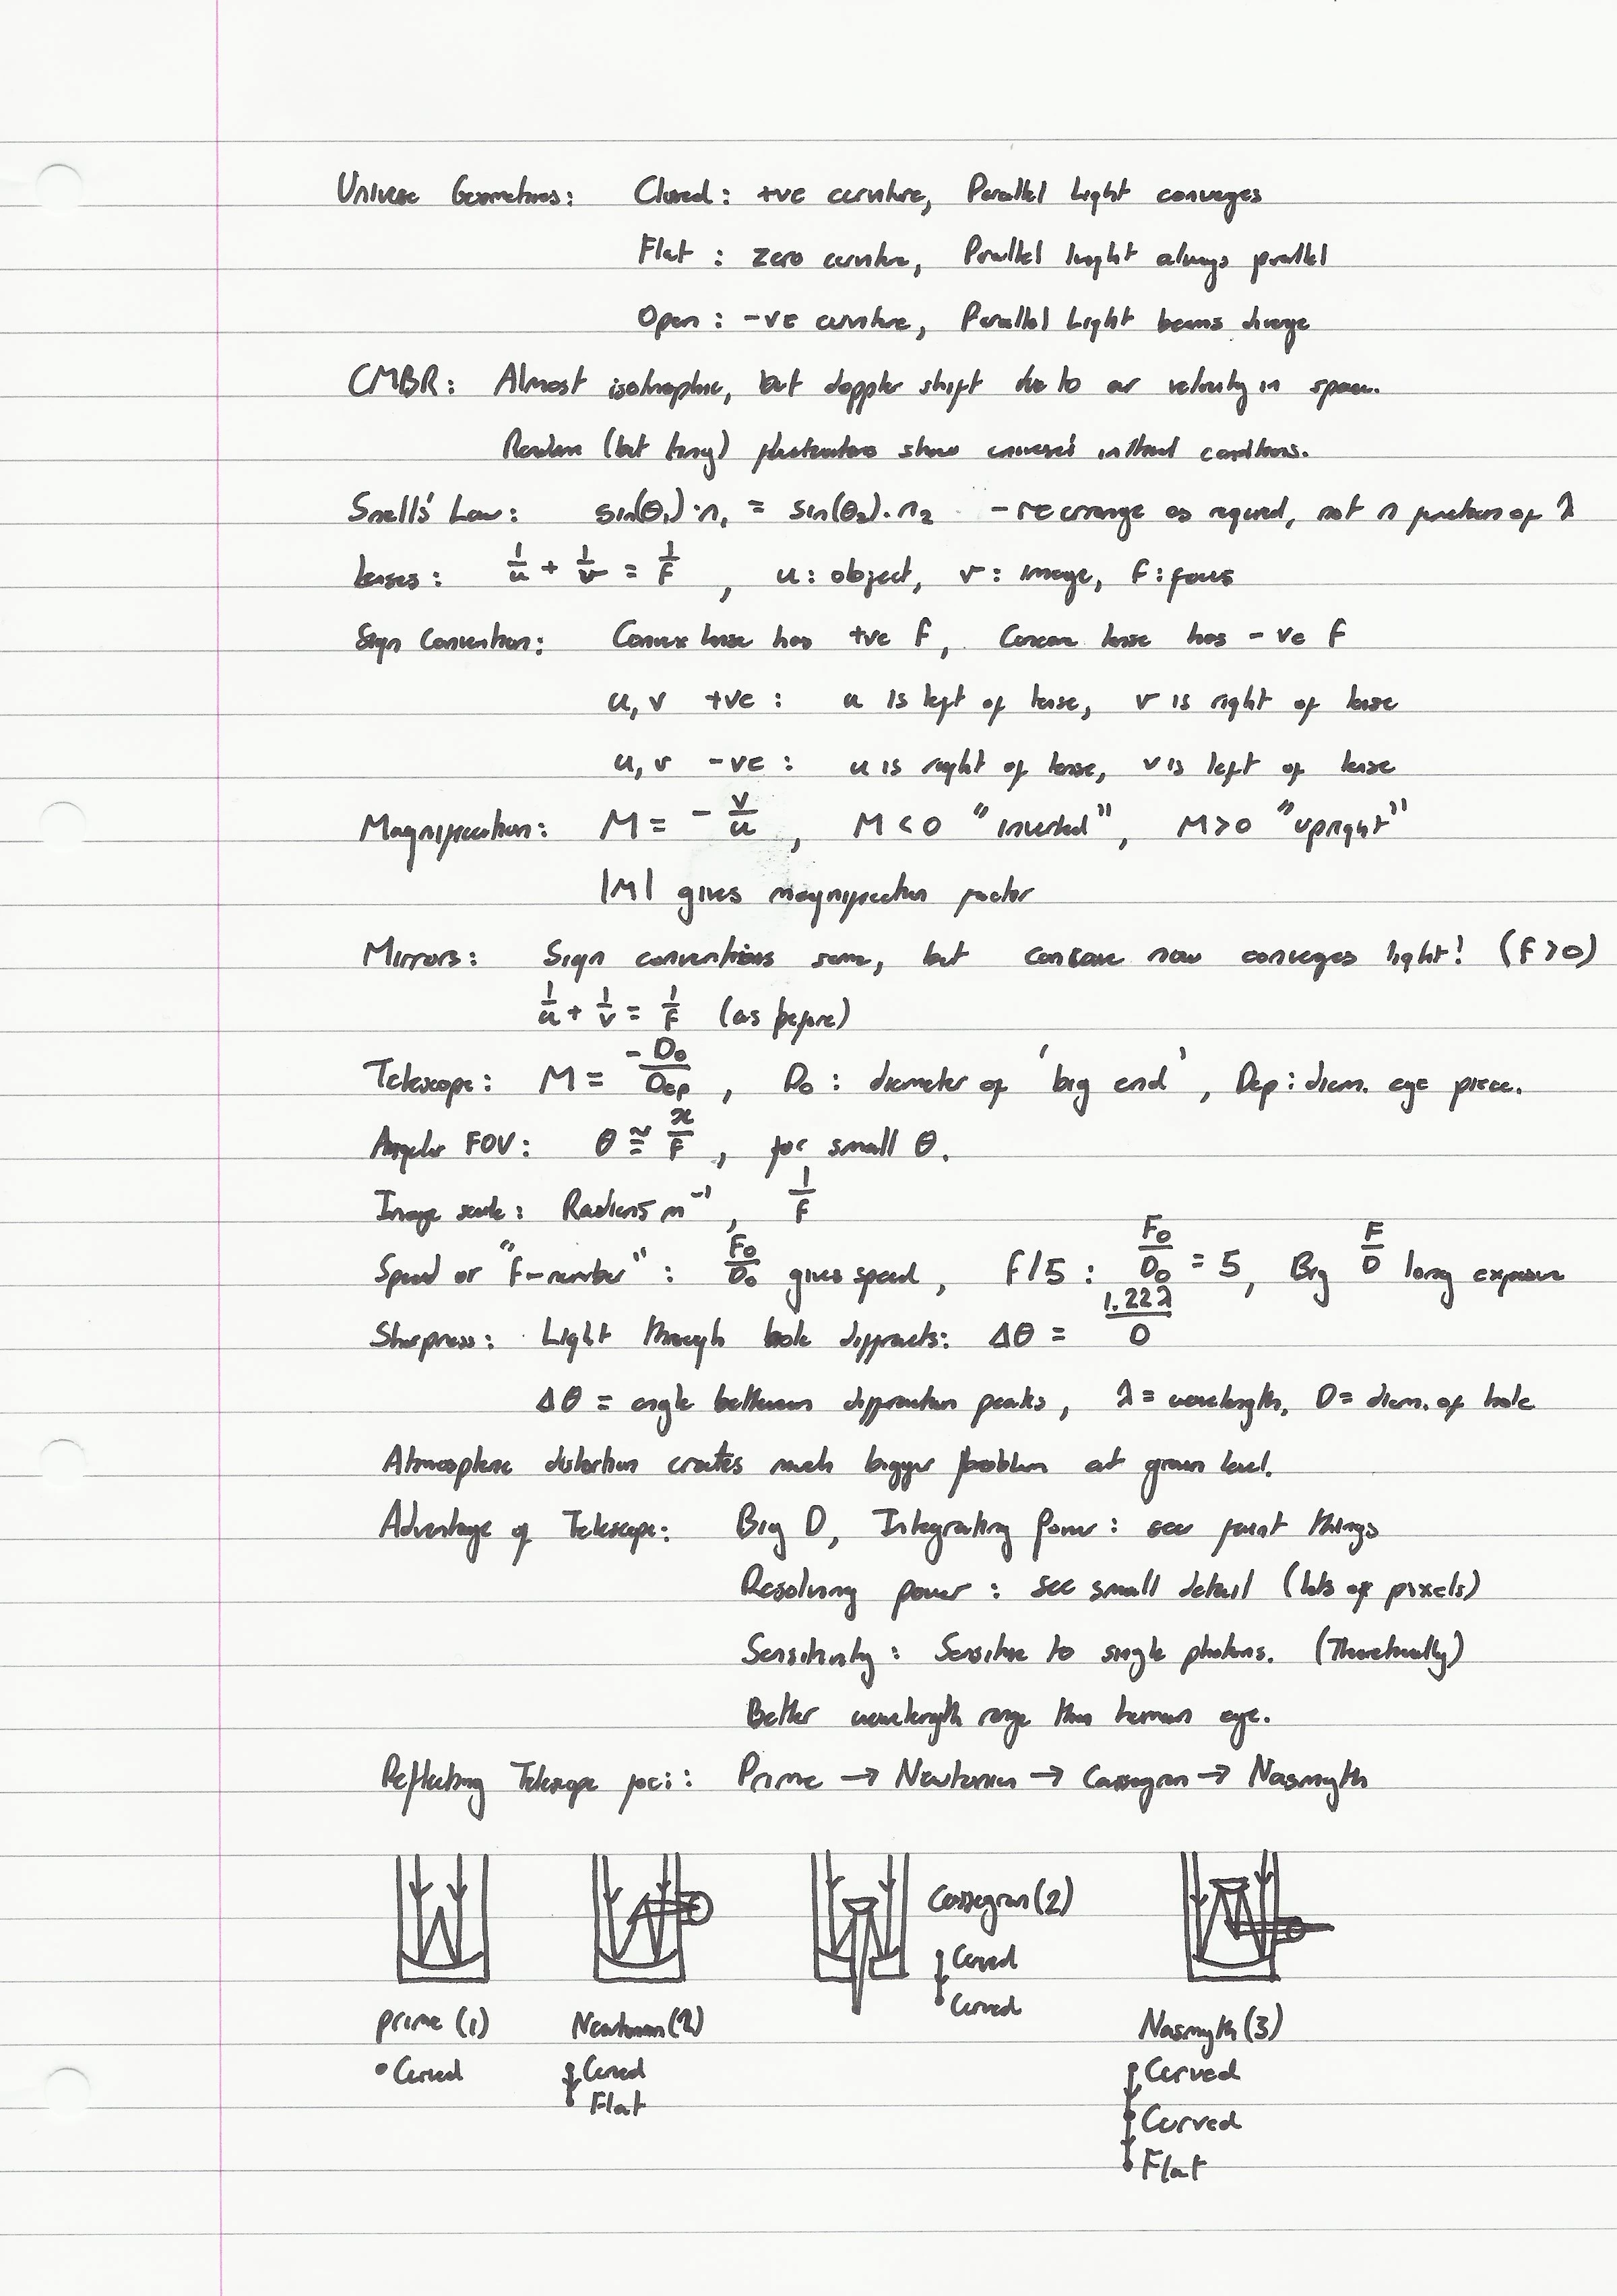 Universe Geometries: Closed: +ve curvature, Parallel Light converges
Flat: zero curvature, Parallel light always parallel
Open: -ve curvature, Parallel Light beams diverge
CMBR: Almost isotrophic, but doppler shift due to our velocity in space.
Random (but tiny) fluctuations show universes' initial conditions.
Snell's Law: sin(θ₁)·n₁ = sin(θ₂)·n₂ - rearrange as required, not n function of λ
Lenses: 1/u + 1/v = 1/F, u: object, v: image, F: focus
Sign Convention: Convex lense has +ve F, Concave lense has -ve F
u, v +ve: u is left of lense, v is right of lense
u, v -ve: u is right of lense, v is left of lense
Magnification: M = - v/u, M<0 "inverted", M>0 "upright"
|M| gives magnification factor
Mirrors: Sign conventions same, but concave now converges light! (F>0)
1/u + 1/v = 1/F (as before)
Telescope: M = -D₀/Dep, D₀: diameter of 'big end', Dep: diam. eye piece.
Angular FOV: θ ≅ x/F, for small θ.
Image scale: Radians m⁻¹, 1/F
Speed or "F-number": F₀/D₀ gives speed, F/5: F₀/D₀ = 5, Big F/D long exposure
Sharpness: Light through hole diffracts: Δθ = 1.22λ/D
Δθ = angle between diffraction peaks, λ = wavelength, D = diam. of hole
Atmospheric distortion creates much bigger problem at groun level.
Advantage of Telescope: Big D, Integrating Power: see faint things
Resolving power: see small detail (lots of pixels)
Sensitivity: Sensitive to single photons. (Theoretically)
Better wavelength range than human eye.
Reflecting Telescope foci: Prime → Newtonian → Cassegrain → Nasmyth
Cassegrain (2)
Curved
Curved
prime (1) Newtonian (2) Nasmyth (3)
Curved Curved Curved
Flat Curved
Flat